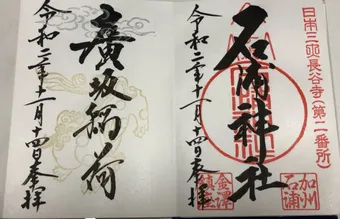 日本三所長谷寺(第二番所)
石浦神社
令和二年十一月十四日奉拝
加州
石浦
廣坂稲荷
令和二年十一月十四日奉拝